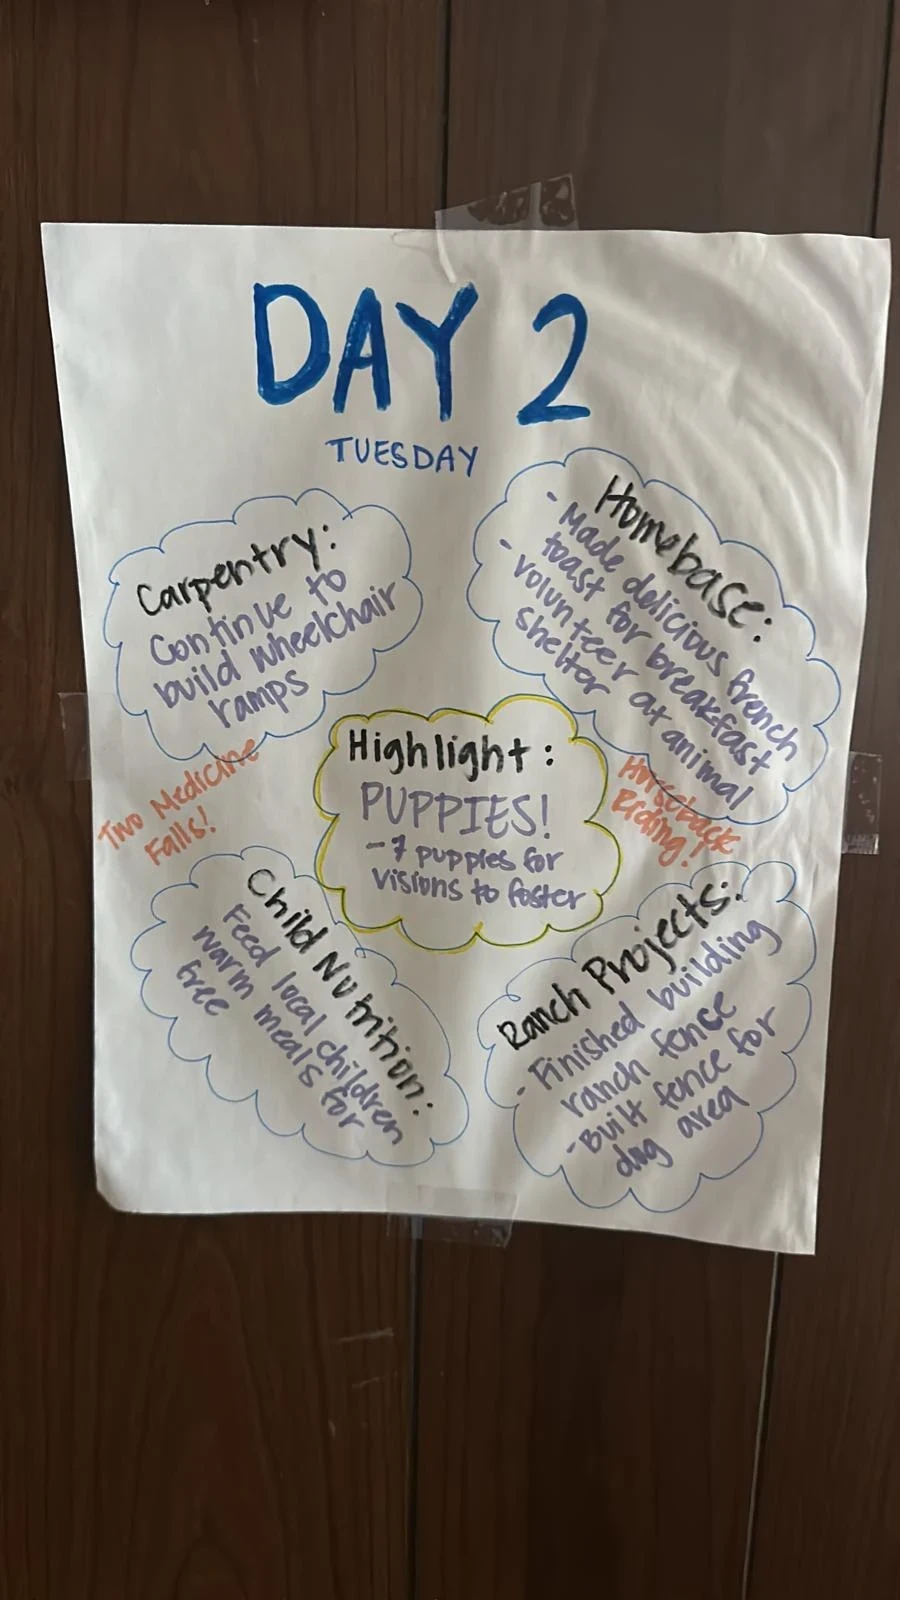 DAY 2
TUESDAY
Carpentry:
Continue to
build wheelchair
ramps
Homebase:
- Made delicious french
toast for breakfast
- volunteer at animal
shelter
Two Medicine
Falls!
Highlight:
PUPPIES!
- 7 puppies for
visions to foster
Horseback
Riding!
Child Nutrition:
Feed local children
warm meals for
free
Ranch Projects:
- Finished building
ranch fence
- Built fence for
dog area